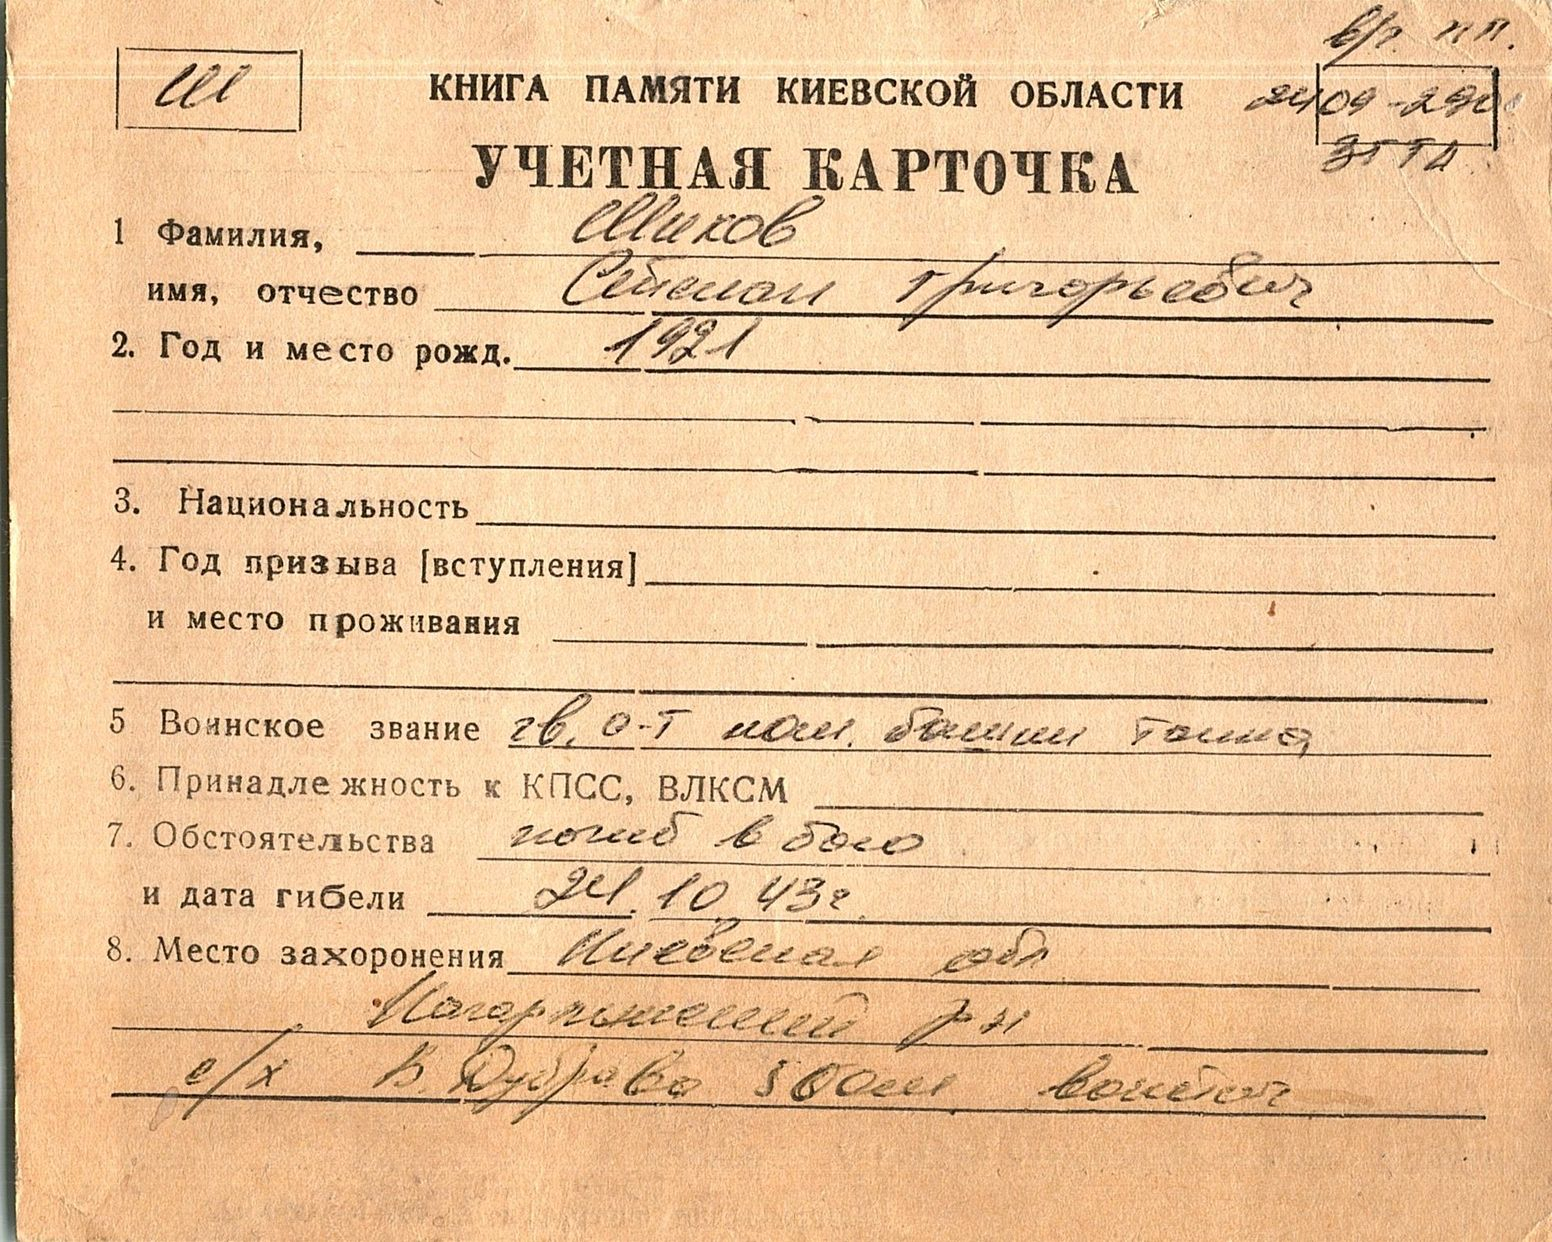 в/ч пп.
Ш
КНИГА ПАМЯТИ КИЕВСКОЙ ОБЛАСТИ
УЧЕТНАЯ КАРТОЧКА
1 Фамилия, Шиков
имя, отчество Степан Григорьевич
2. Год и место рожд. 1921
3. Национальность
4. Год призыва [вступления]
и место проживания
5 Воинское звание гв. с-т ком. башни танка
6. Принадлежность к КПСС, ВЛКСМ
7. Обстоятельства погиб в бою
и дата гибели 24.10.43г.
8. Место захоронения Киевская обл
р-н
с/х В. Дубрава 500м